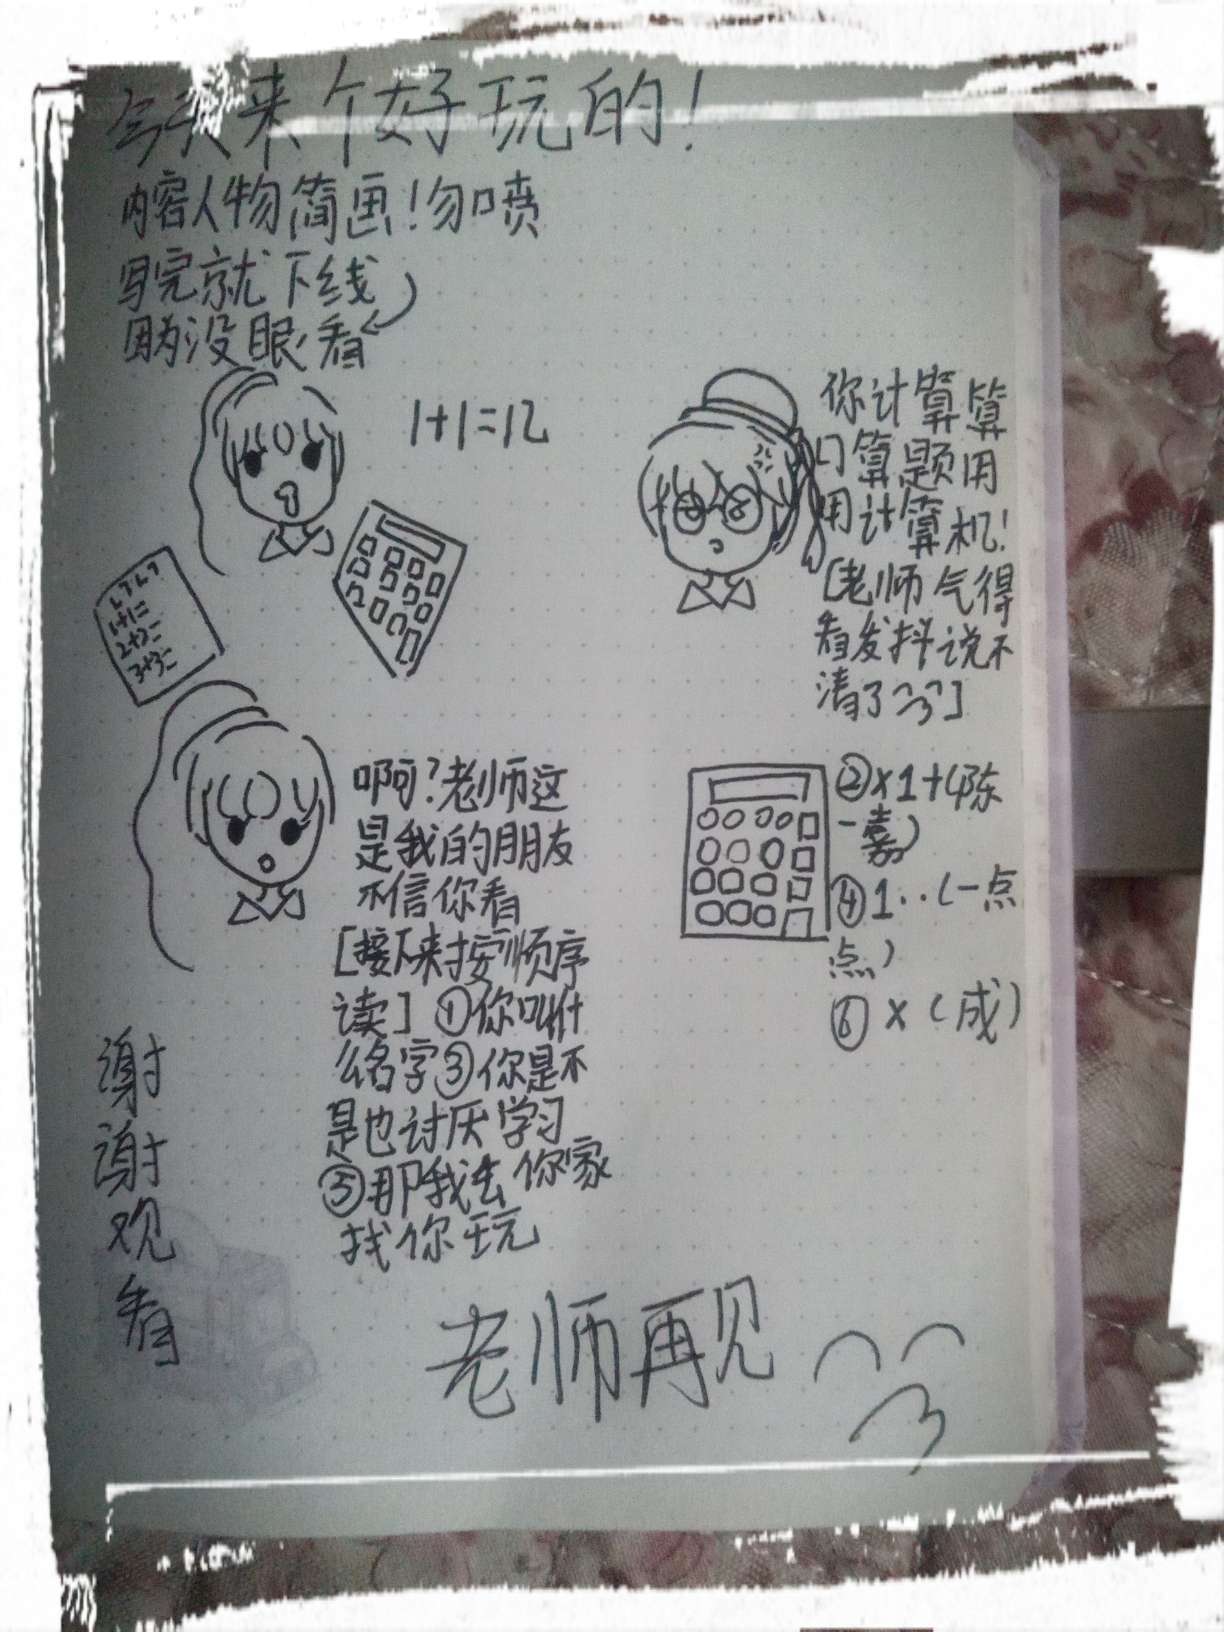 今天来个好玩的!
内容人物简画!勿喷
写完就下线
因为没眼看
1+1=12
1+1=
2+2=
3+3=
你计算算
口算题用
用计算机!
[老师气得
看发抖说不
清了]
啊?老师这
是我的朋友
不信你看
[接下来按顺序
读]①你叫什
么名字③你是不
是也讨厌学习
⑤那我去你家
找你玩
②×1+(陈
一嘉)
④1..(一点
点)
⑥×(成)
谢谢观看
老师再见